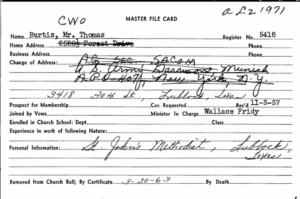 CWO
MASTER FILE CARD
a L 2 1971
Name Burtis, Mr. Thomas Register No. 5416
Home Address Forest Drive Phone
Business Address Phone
Change of Address: AG Sec. SACOM
U.S. Army Garrison Munich
A.P.O. 407, New York, N.Y
3418 30th St, Lubbock, Texas
Prospect for Membership Cor. Requested Rec'd 11-3-57
Joined by Vows Minister In Charge Wallace Fridy
Enrolled in Church School: Dept. Class
Experience in work of following Nature:
Personal Information: St John's Methodist, Lubbock,
Texas
Removed from Church Roll; By Certificate 3-30-63 By Death